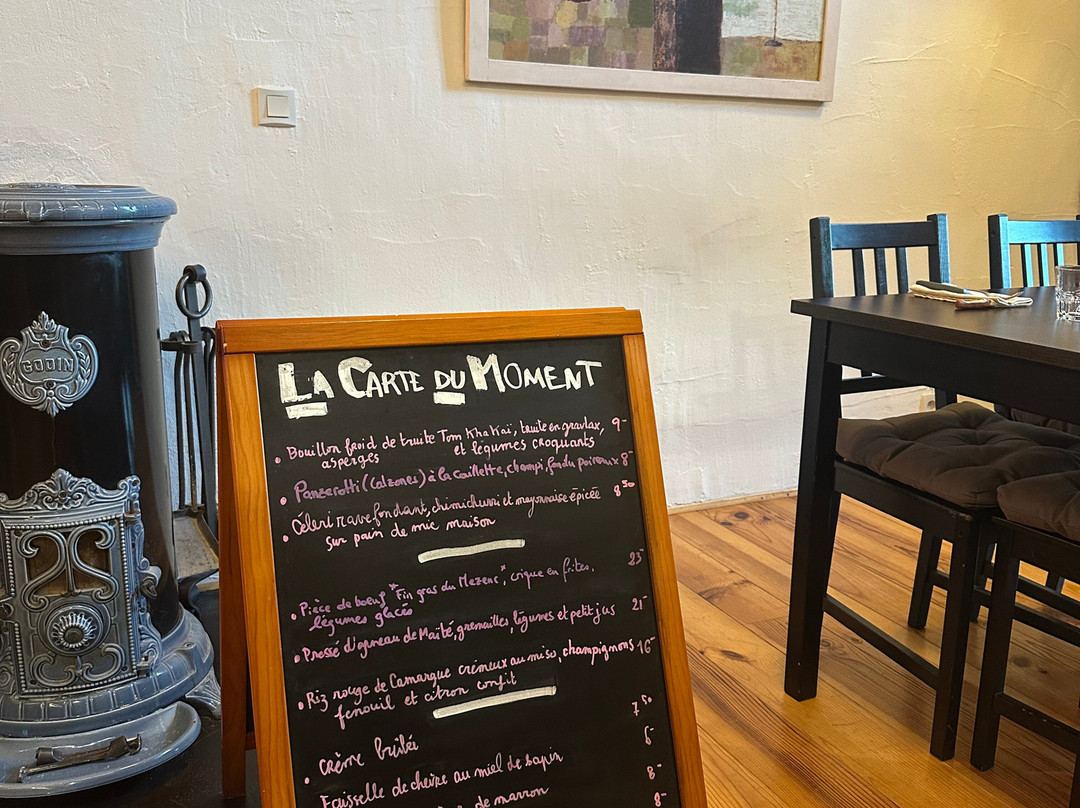 GODIN
LA CARTE DU MOMENT
• Bouillon froid de truite Tom Kha Kaï, truite en gravlax, 9-
asperges et légumes croquants
• Panzerotti (calzones) à la caillette, champi, fondu poireaux 8-
• Céleri rave fondant, chimichurri et mayonnaise épicée 8 50
sur pain de mie maison
• Pièce de boeuf "Fin gras du Mezenc", crique en frites, 23-
légumes glacés
• Pressé d'agneau de Maïté, grenailles, légumes et petit jus 21-
• Riz rouge de Camargue crémeux au miso, champignons 16-
fenouil et citron confit
• Crème brûlée 7 50
Faisselle de chèvre au miel de sapin 6-
de marron 8-
8-